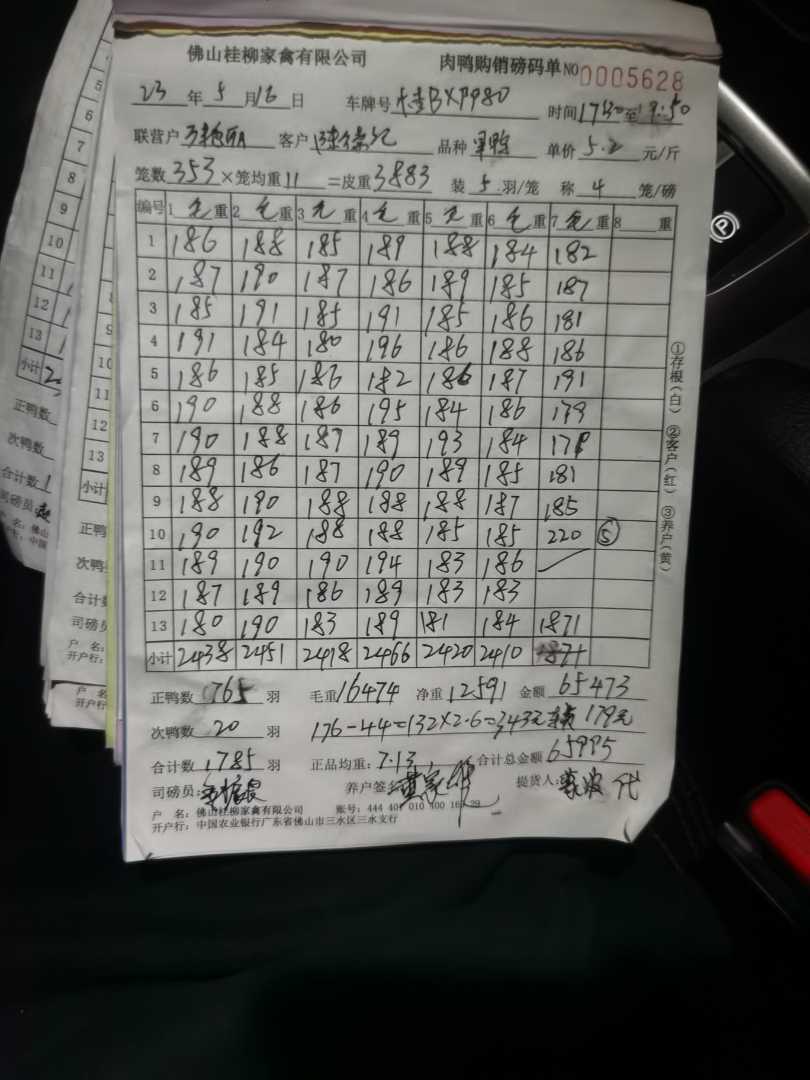 佛山桂柳家禽有限公司 肉鸭购销磅码单 NO 0005628
23 年 5 月 16 日 车牌号 BXP980 时间 1730 至 19:50
联营户 客户 品种 单价 5.2 元/斤
笼数 353 ×笼均重 11 =皮重 3883 装 5 羽/笼 称 4 笼/磅
编号 1 毛 重 2 毛 重 3 毛 重 4 毛 重 5 毛 重 6 毛 重 7 毛 重 8 重
1 186 188 185 189 188 184 182
2 187 190 187 186 189 185 187
3 185 191 185 191 185 186 181
4 191 184 180 196 186 188 186
5 186 185 186 182 186 187 191
6 190 188 186 195 184 186 179
7 190 188 187 189 193 184 178
8 189 186 187 190 189 185 181
9 188 190 188 188 188 187 185
10 190 192 188 188 185 185 220 ⑤
11 189 190 190 194 183 186
12 187 189 186 189 183 183
13 180 190 183 189 181 184 1871
小计 2438 2451 2418 2466 2420 2410 1871
正鸭数 1765 羽 毛重 16474 净重 12591 金额 65473
次鸭数 20 羽 176-44=132×2.6=343元 179元
合计数 1785 羽 正品均重: 7.13 合计总金额 65995
司磅员: 养户签 提货人: 代
户 名: 佛山桂柳家禽有限公司 账号: 444 010 400
开户行: 中国农业银行广东省佛山市三水区三水支行
①存根(白) ②客户(红) ③养户(黄)
5
6
7
8
9
10
11
12
13
小计
正鸭数
次鸭数
合计数
司磅员
户 名: 佛山
9
10
11
12
13
小计
正鸭
次鸭
合计
司磅员
户 名:
开户行:
P